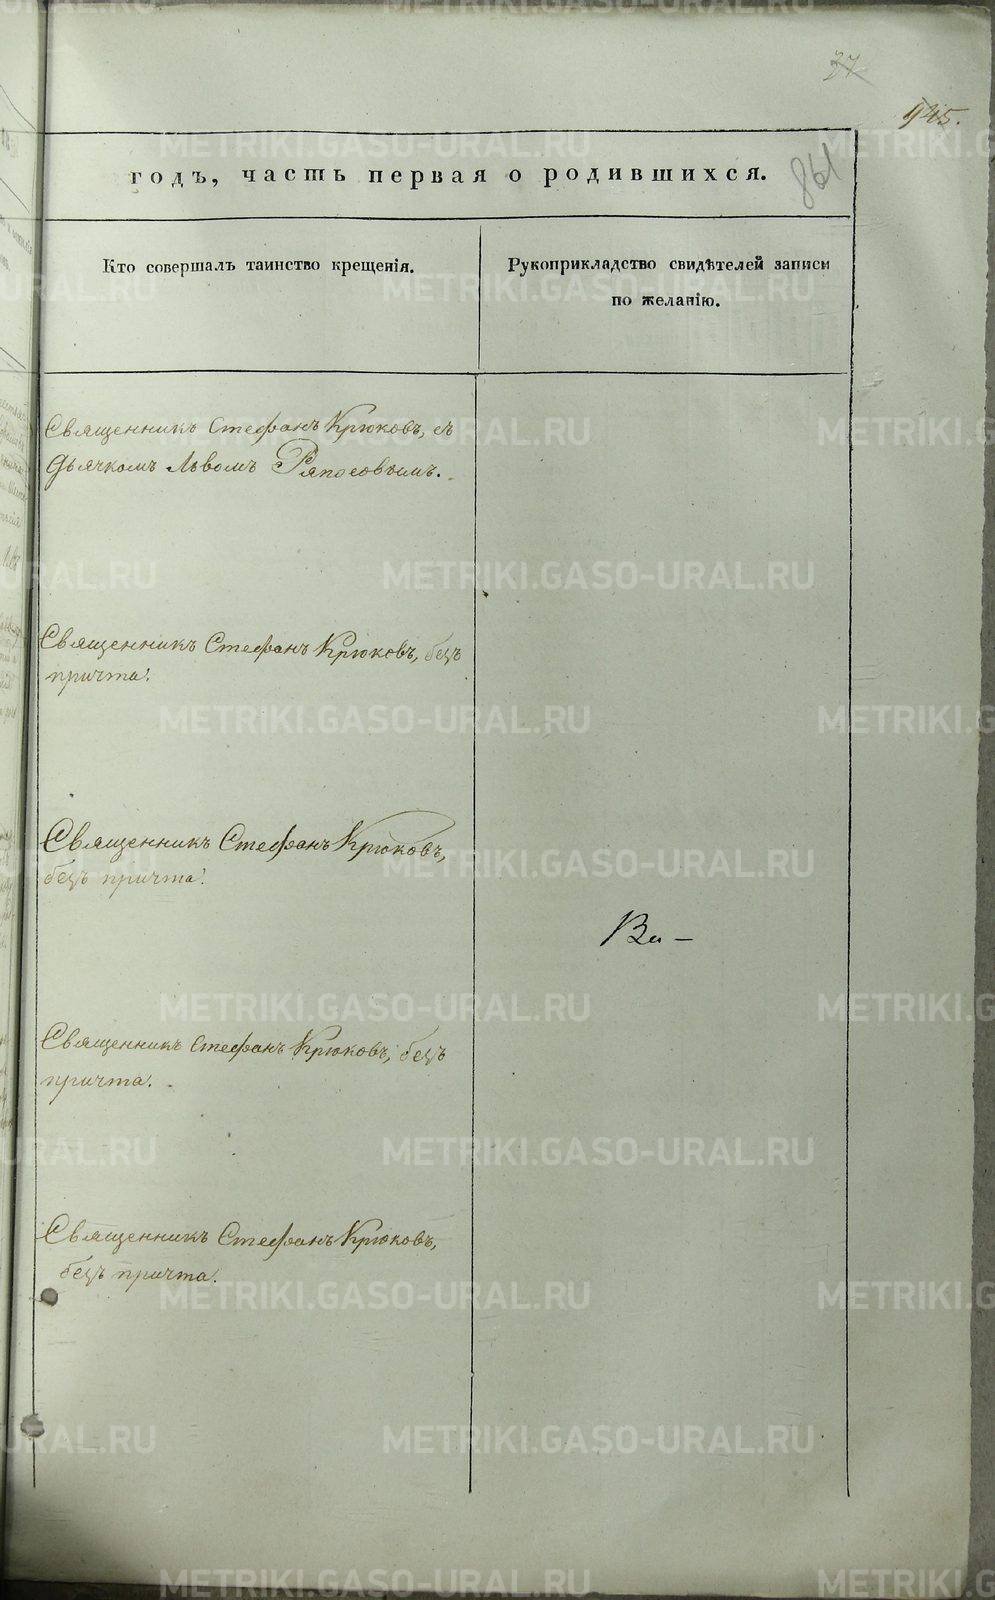 37
945.
861
годъ, часть первая о родившихся.
Кто совершалъ таинство крещенія.
Рукоприкладство свидѣтелей записи
по желанію.
Священникъ Стефанъ Крюковъ, съ
дьячкомъ Львомъ Ряпосовымъ.
Священникъ Стефанъ Крюковъ, безъ
причта.
Священникъ Стефанъ Крюковъ,
безъ причта.
Священникъ Стефанъ Крюковъ, безъ
причта.
Священникъ Стефанъ Крюковъ,
безъ причта.
METRIKI.GASO-URAL.RU